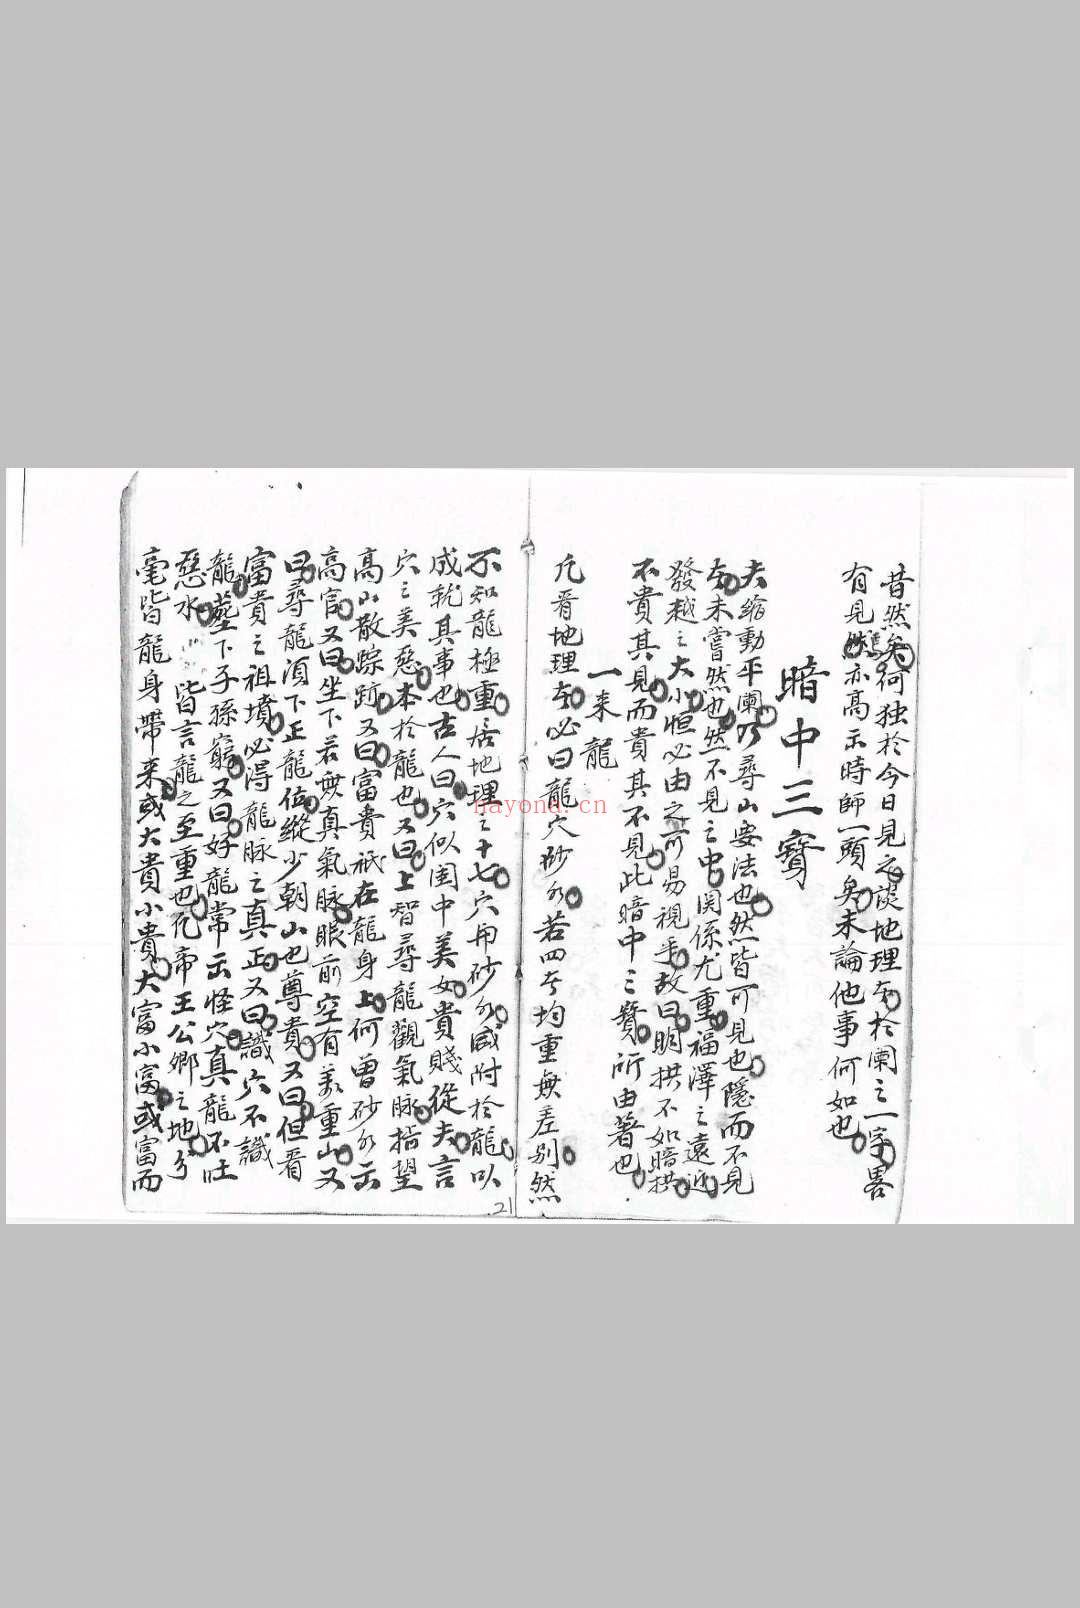 昔然矣何独於今日見之談地理者於闌之一字畧
有見然亦高示時師一頭矣未論他事何如也
暗中三寳
夫縮動平闌乃尋山要法也然皆可見也隱而不見
者未嘗然也然不見之中関係尤重福澤之遠近
發越之大小恒必由之可易視乎故曰明拱不如暗拱
不貴其見而貴其不見此暗中三寳所由著也
一来龍
凢看地理者必曰龍穴砂水若四者均重無差别然
不知龍極重居地理之十七穴與砂水咸附於龍以
成就其事也古人曰穴似闺中美女貴賤從夫言
穴之美惡本於龍也又曰上智尋龍觀氣脉指望
高山散踪跡又曰富貴祇在龍身上何曽砂水示
高官又曰坐下若無真氣脉眼前空有萬重山又
曰尋龍須下正龍位縱少朝山也尊貴又曰但看
富貴之祖墳必得龍脉之真正又曰識穴不識
龍塟下子孫窮又曰好龍常示怪穴真龍不旺
惡水皆言龍之至重也凢帝王公卿之地分
毫皆龍身帶来或大貴小貴大富小富或富而
21
nayona.cn